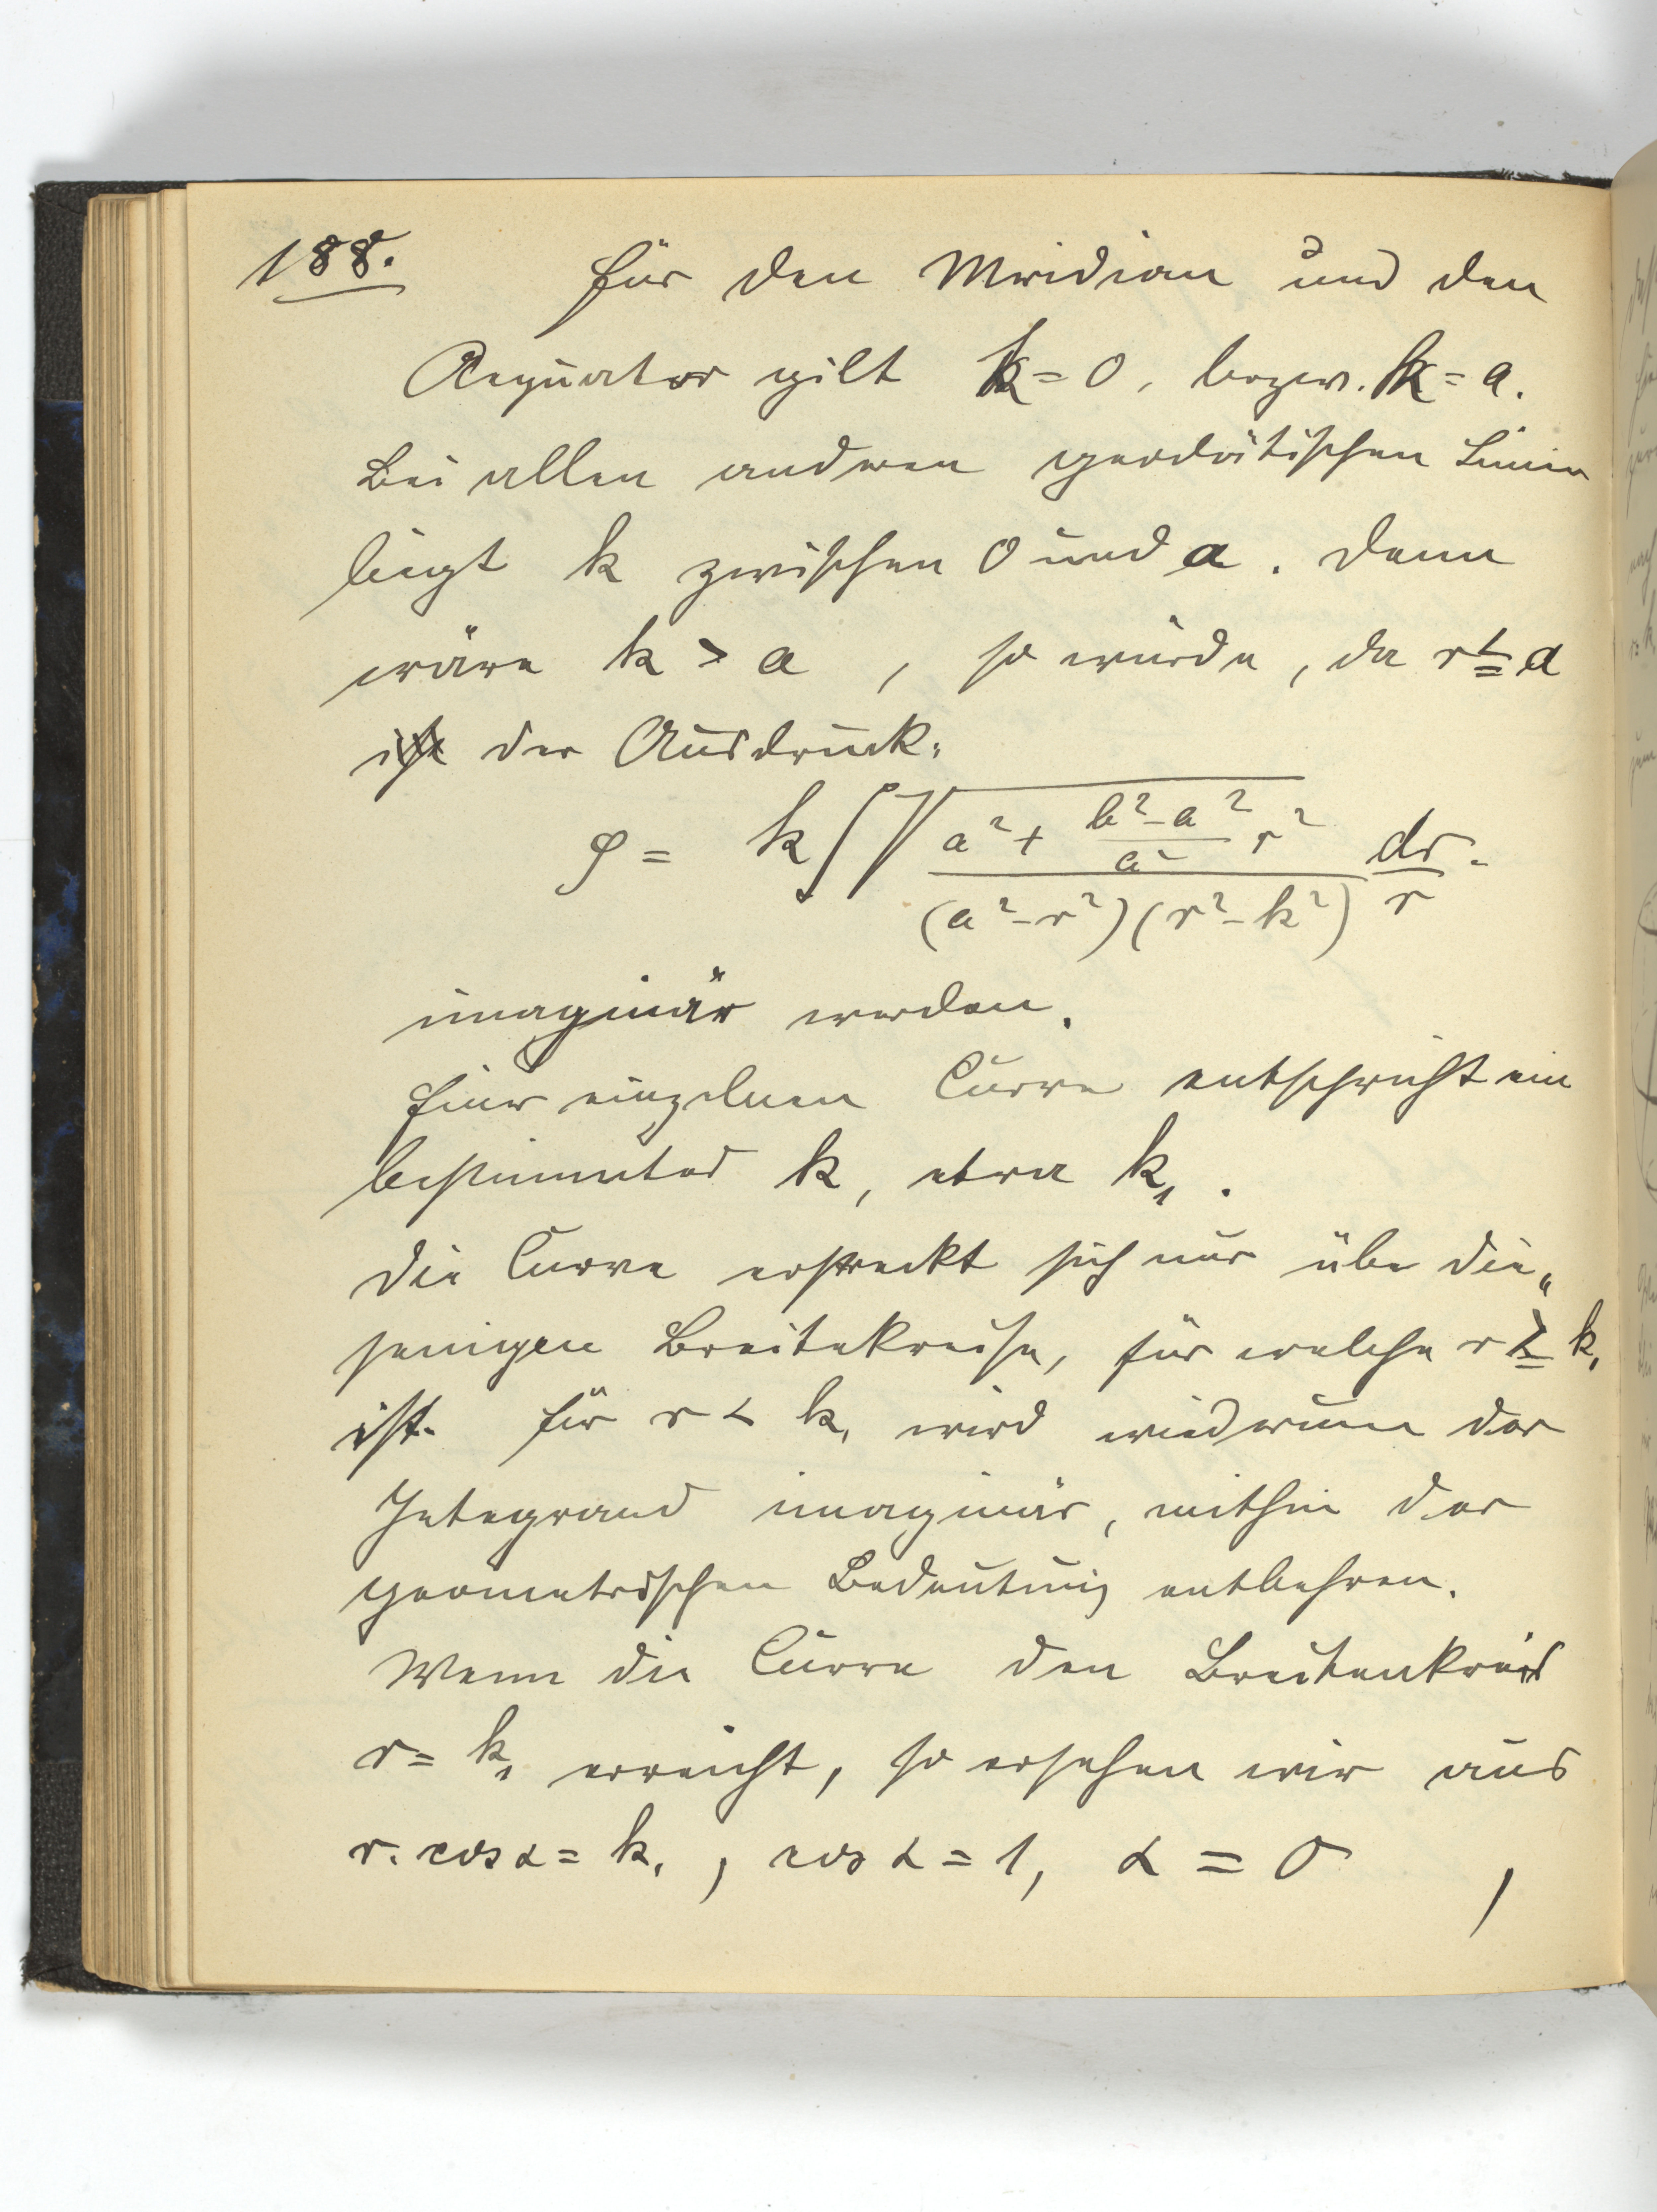 188. Für den Meridian und den
Aequator gilt k = 0, bezw. k = a.
Bei allen anderen geodätischen Linien
liegt k zwischen 0 und a. Denn
wäre k > a, so würde, da r ≦ a
ist der Ausdruck:
φ = k ∫ √((a² + (b²-a²)/a² r²)/((a²-r²)(r²-k²))) dr/r.
imaginär werden.
Einer einzelnen Curve entspricht ein
bestimmtes k, etwa k₁.
Die Curve erstreckt sich nur über die„
jenigen Breitekreise, für welche r ≧ k₁
ist. Für r < k₁ wird wiederum der
Integrand imaginär, mithin der
geometrischen Bedeutung entbehren.
Wenn die Curve den Breitenkreis
r = k₁ erreicht, so ersehen wir aus
r. cos α = k₁, cos α = 1, α = 0,